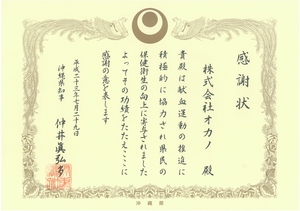 感謝状
株式会社オカノ 殿
貴殿は献血運動の推進に
積極的に協力され県民の
保健衛生の向上に寄与されました
よってその功績をたたえここに
感謝の意を表します
平成二十三年七月二十九日
沖縄県知事
仲井眞弘多
沖縄県